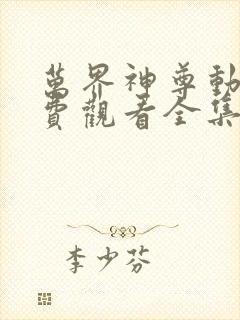 萬界神尊動
費觀看全集
李少芬